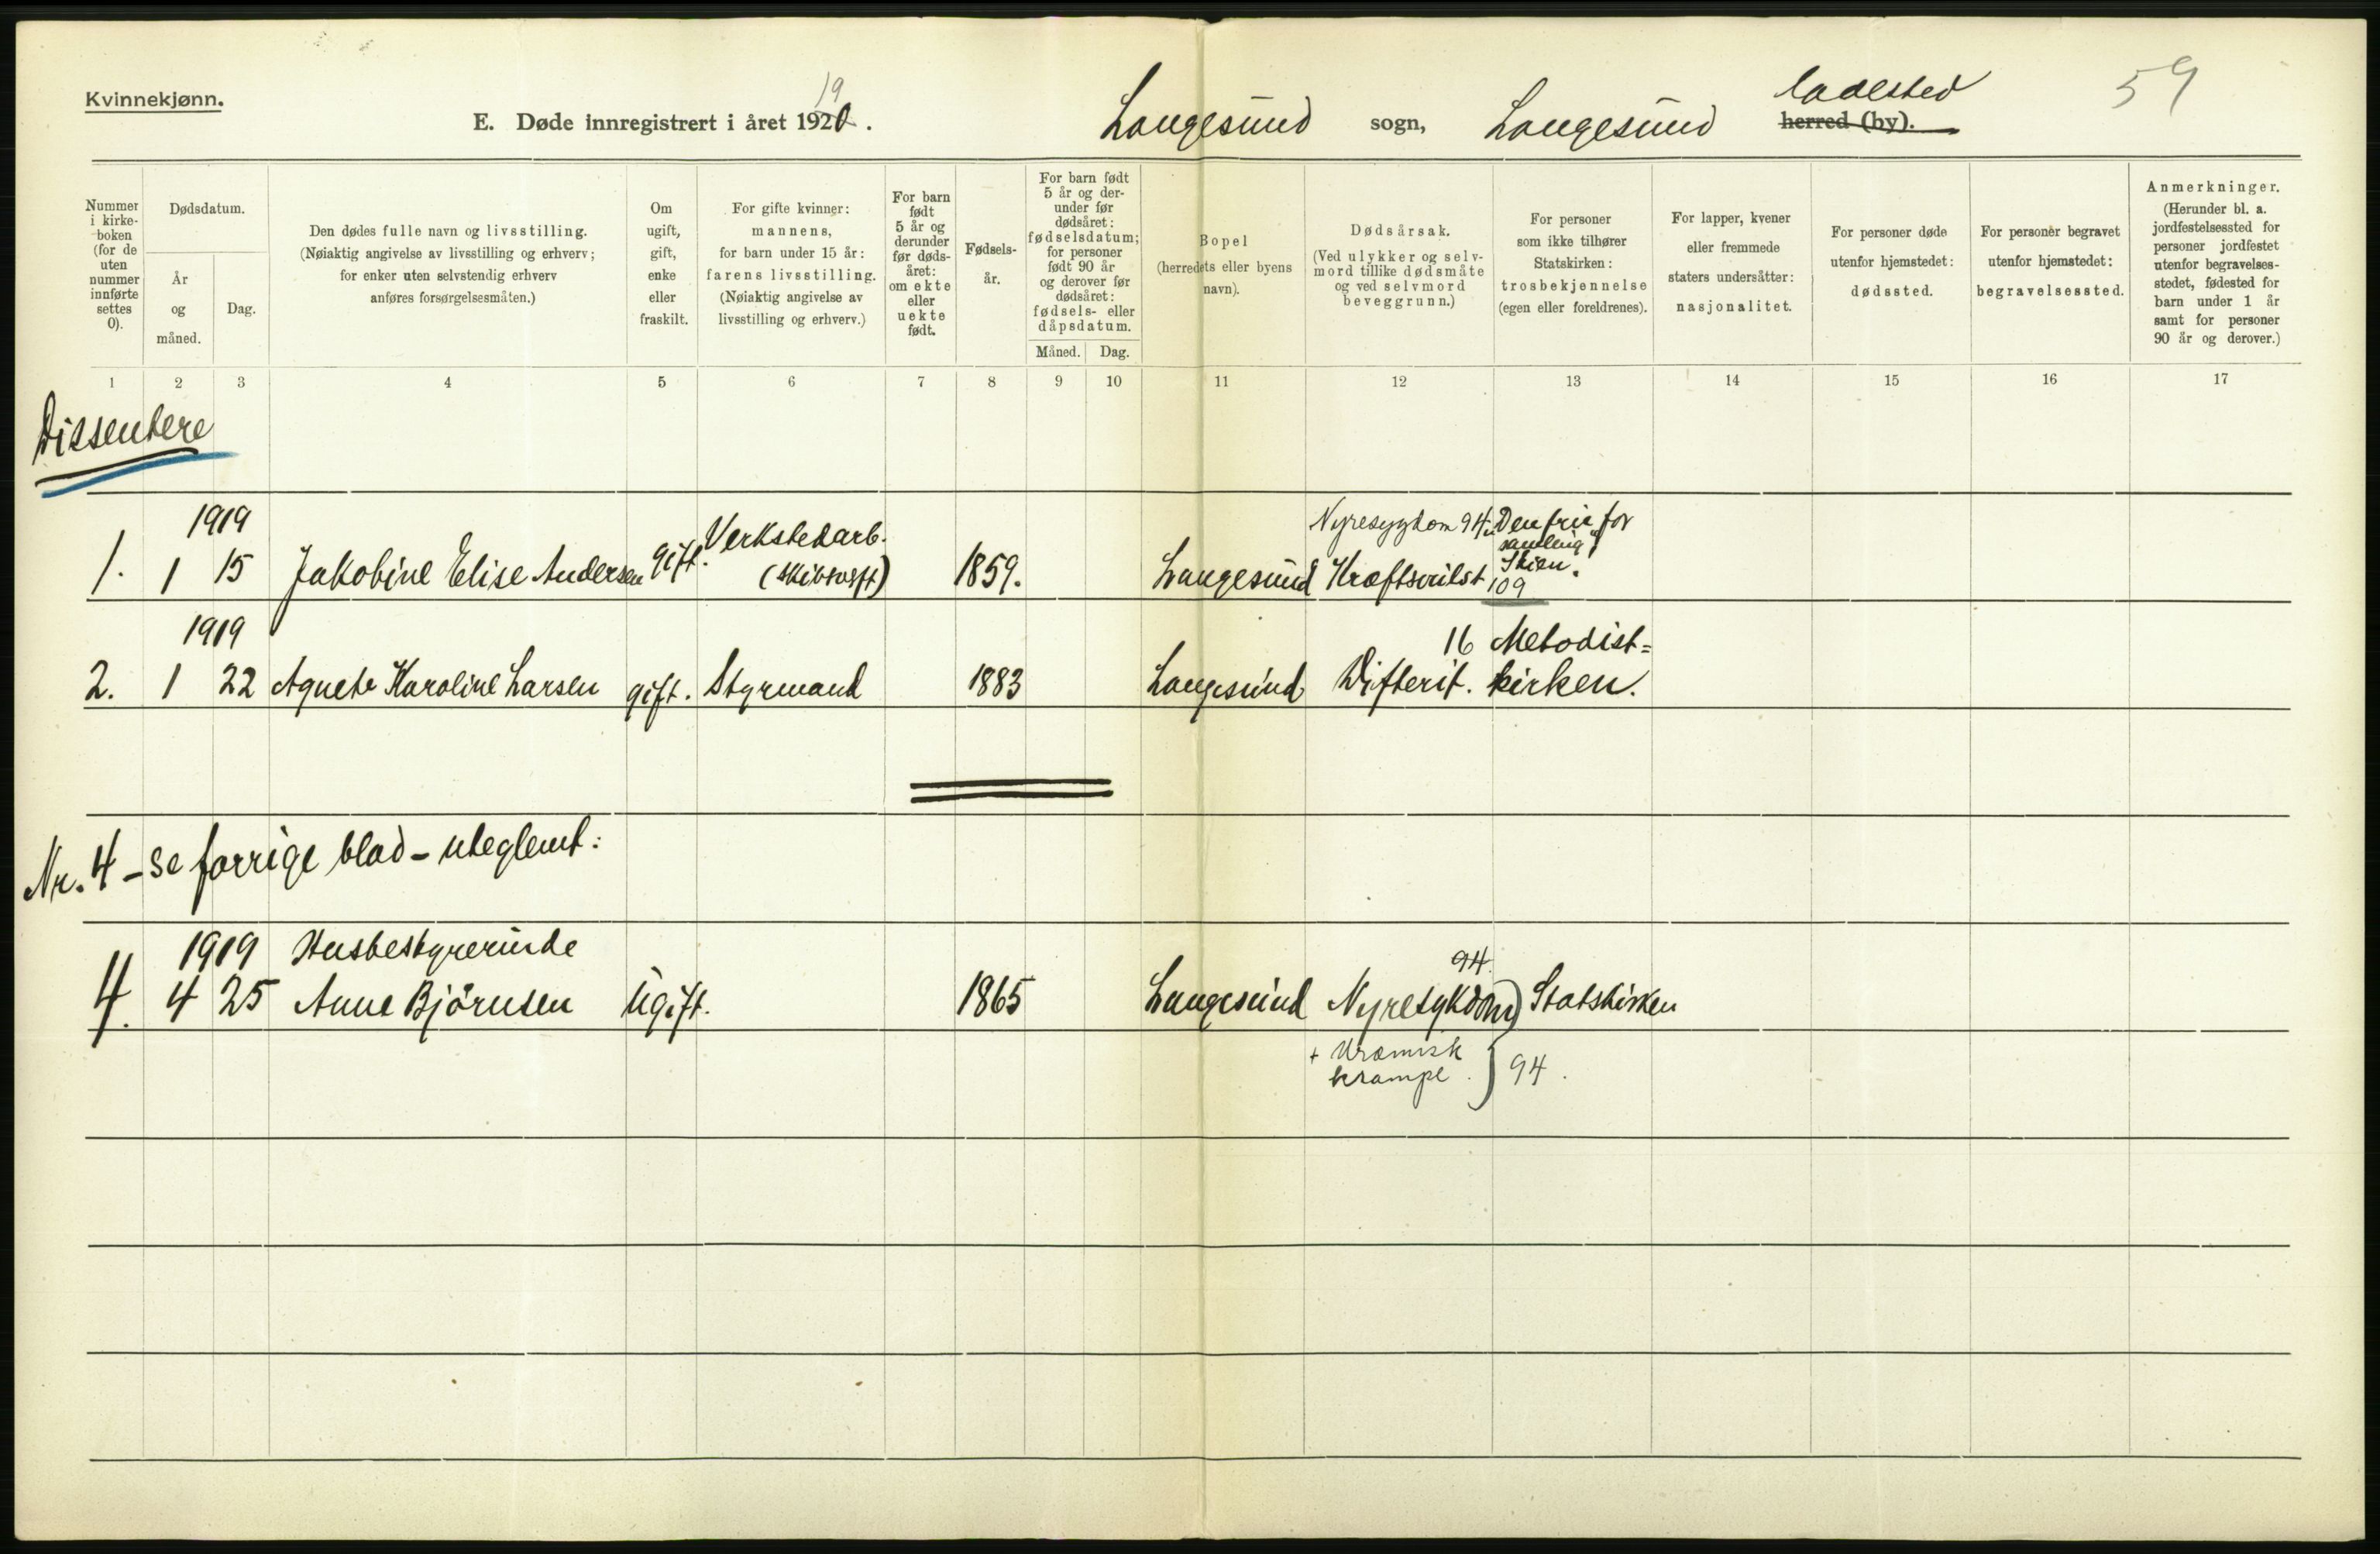 Kvinnekjønn.
E. Døde innregistrert i året 1920.
19
Langesund sogn, Langesund herred (by).
ladested
59
Nummer i kirke-boken (for de uten nummer innførte settes 0).
Dødsdatum.
År og måned.
Dag.
Den dødes fulle navn og livsstilling.
(Nøiaktig angivelse av livsstilling og erhverv;
for enker uten selvstendig erhverv
anføres forsørgelsesmåten.)
Om ugift, gift, enke eller fraskilt.
For gifte kvinner:
mannens,
for barn under 15 år:
farens livsstilling.
(Nøiaktig angivelse av
livsstilling og erhverv.)
For barn født 5 år og derunder før døds-året: om ekte eller uekte født.
Fødsels-år.
For barn født 5 år og der-under før dødsåret: fødselsdatum; for personer født 90 år og derover før dødsåret: fødsels- eller dåpsdatum.
Måned. Dag.
Bopel
(herredets eller byens navn).
Dødsårsak.
(Ved ulykker og selv-mord tillike dødsmåte og ved selvmord beveggrunn.)
For personer som ikke tilhører Statskirken: trosbekjennelse (egen eller foreldrenes).
For lapper, kvener eller fremmede staters undersåtter: nasjonalitet.
For personer døde utenfor hjemstedet: dødssted.
For personer begravet utenfor hjemstedet: begravelsessted.
Anmerkninger.
(Herunder bl. a. jordfestelsessted for personer jordfestet utenfor begravelses-stedet, fødested for barn under 1 år samt for personer 90 år og derover.)
1 2 3 4 5 6 7 8 9 10 11 12 13 14 15 16 17
Dissentere
1919 Verkstedarb. Nyresygdom 94. Den frie for
samling
Skien.
1. 1 15 Jakobine Elise Andersen gift. 1859. Langesund Kræftsvulst 109
1919 16 Metodist=
2. 1 22 Agnete Karoline Larsen gift. Styrmand 1883 Langesund Difterit. kirken.
Nr. 4 - se forrige blad - uteglemt:
1919 Husbestyrerinde 94.
4. 4 25 Anne Björnsen Ugift. 1865 Langesund Nyresykdom Statskirken
+ Uræmisk
krampe. } 94.